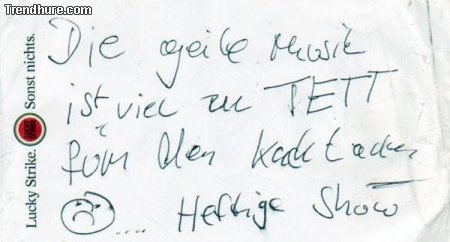 Trendhure.com
Lucky Strike. Sonst nichts.
Die geile Musik
ist viel zu FETT
für den Kackladen
.... Heftige Show